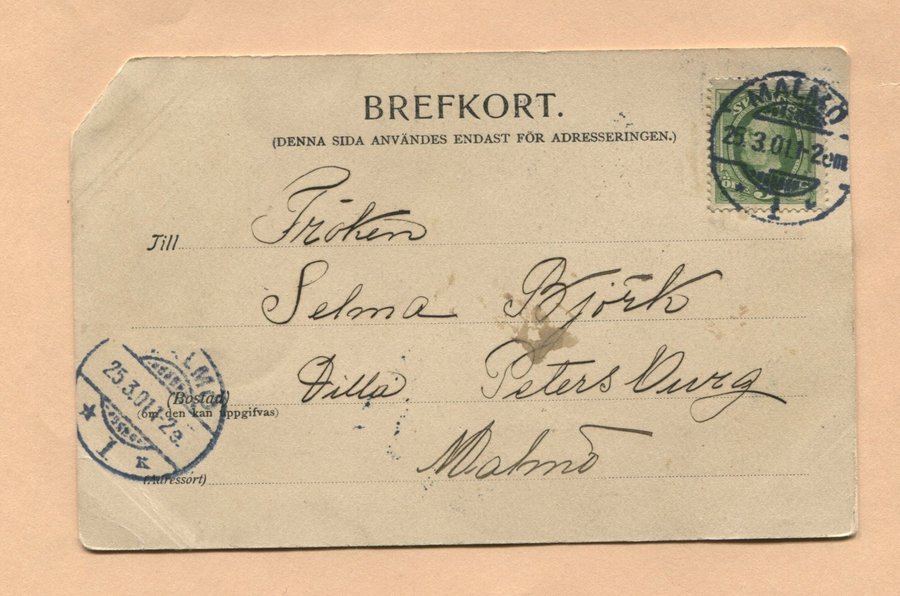 BREFKORT.
(DENNA SIDA ANVÄNDES ENDAST FÖR ADRESSERINGEN.)
MALMÖ
25.3.01.1-2em
1
Till Fröken
Selma Björk
Villa Petersburg
Malmö
25.3.01.1-2e.
1 K
(Bostad)
(om den kan uppgifvas)
(Adressort)